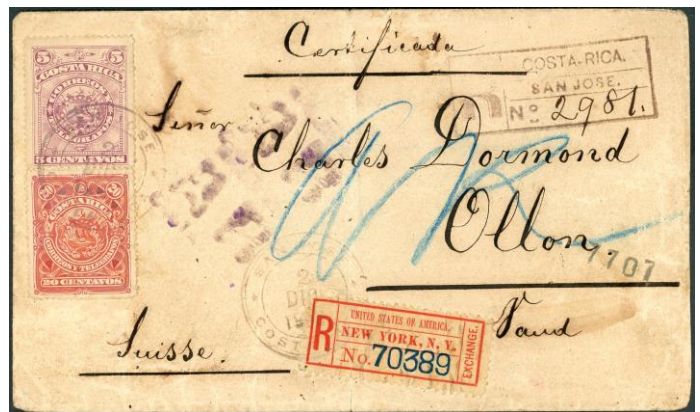 Certificada
5 5
COSTA RICA
CORREOS
5 CENTAVOS
20 20
COSTA RICA
CORREOS Y TELEGRAFOS
20 CENTAVOS
COSTA-RICA.
SAN JOSE.
Nº 2981.
Señor
Charles Dormond
Ollon
7707
Vaud
Suisse.
2
DIC
COST
R
UNITED STATES OF AMERICA.
NEW YORK, N. Y.
No. 70389
EXCHANGE.